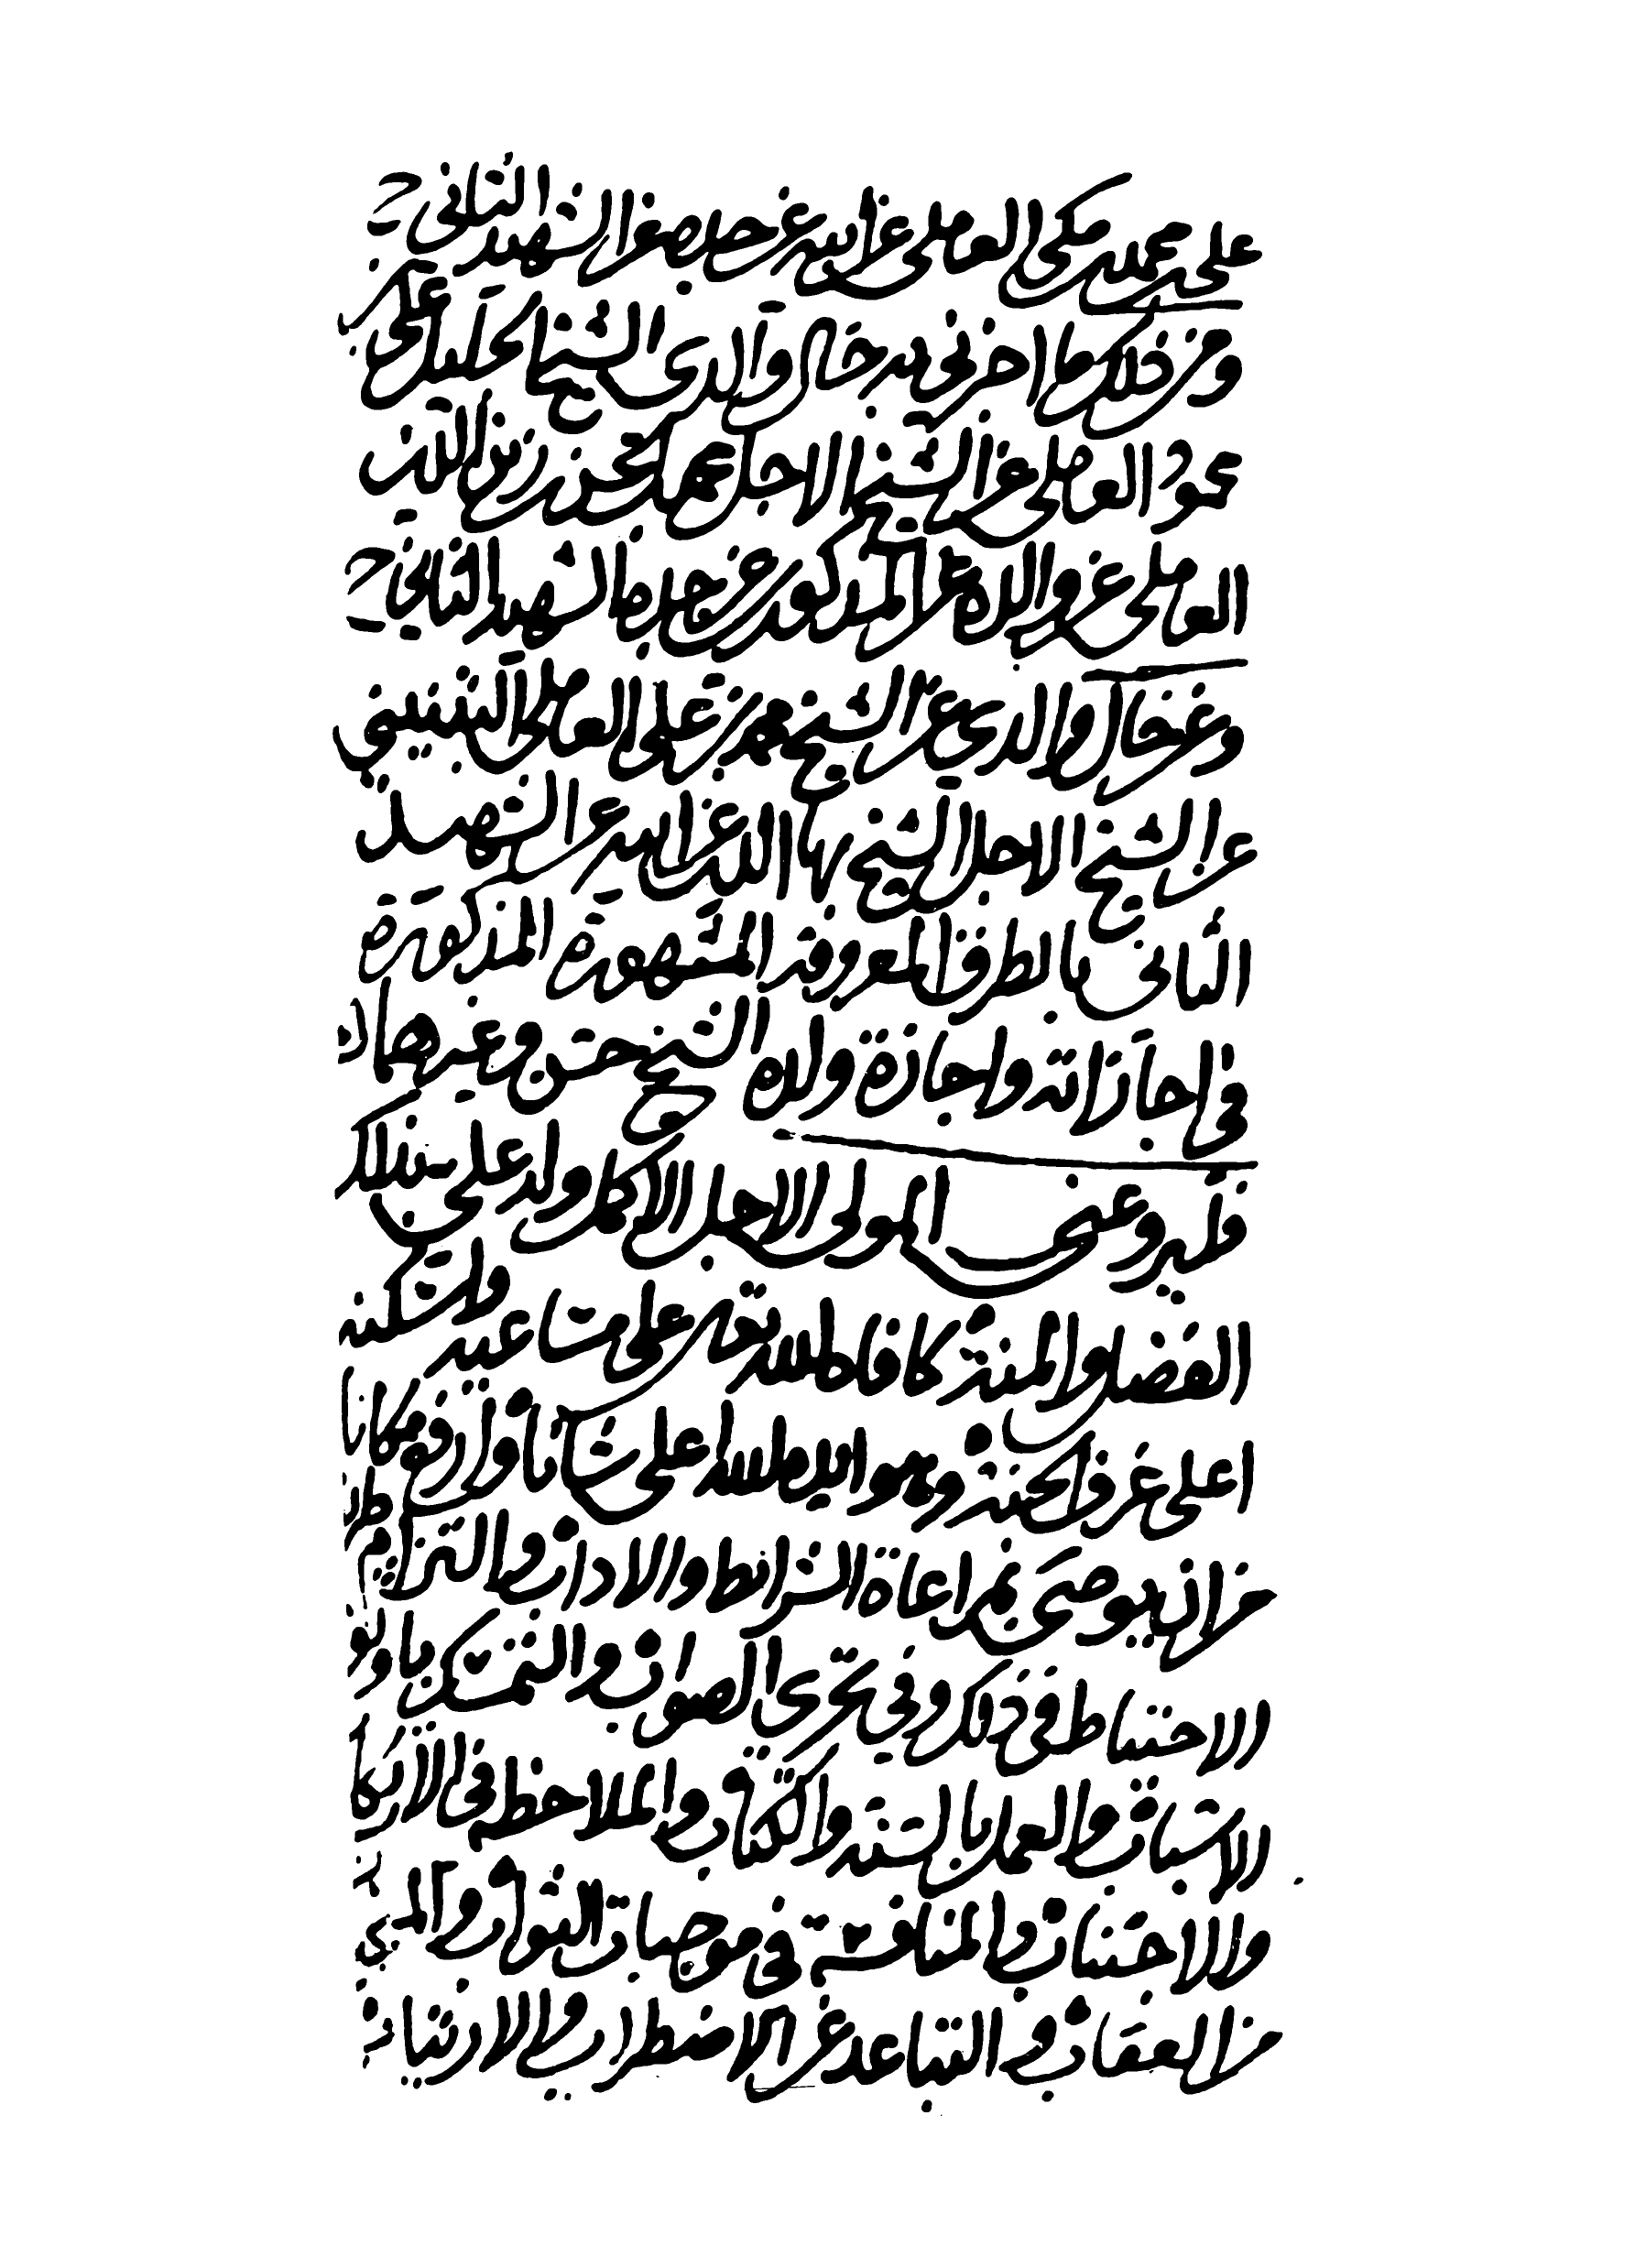 علي بن محمد بن مكي العاملي عن ابيه عن جده صفي الشهيد الثاني ح
ومن ذلك ما اخبرني به خال والدي الشيخ علي بن
محمود العاملي عن الشيخ الاجل محمد بن حسن بن زين الدين
العاملي عن والده عن المذكور عن جده الشهيد الثاني ح
وعن خال والدي عن الشيخ محمد بن علي العاملي التبنيني
عن الشيخ الاجل الشيخ بهاء الدين عن ابيه عن الشهيد
الثاني بالطرق المعروفة المشهورة المذكورة
في اجازاته واجازة ولده الشيخ حسن وغيرهما
فليرو عني المولى الاجل الاكمل ولد علي بتلك
الفضل والمنة كافاه الله تعالى على مساعيه واسكنه
اعلى غرف الجنة وهو ايده الله اعلى شانا وارفع مكانا
من ان يوصى بمراعاة الشرائط والاداب والتزام
الاحتياط في ذلك وفي تحري الصواب والتمسك باوثق
الاسباب والعمل بالسنة والكتاب والملاحظة في الارتكاب
والاجتناب والمنافسة في موجبات الثواب و
من العقاب والتباعد عن الاضطراب والارتياب